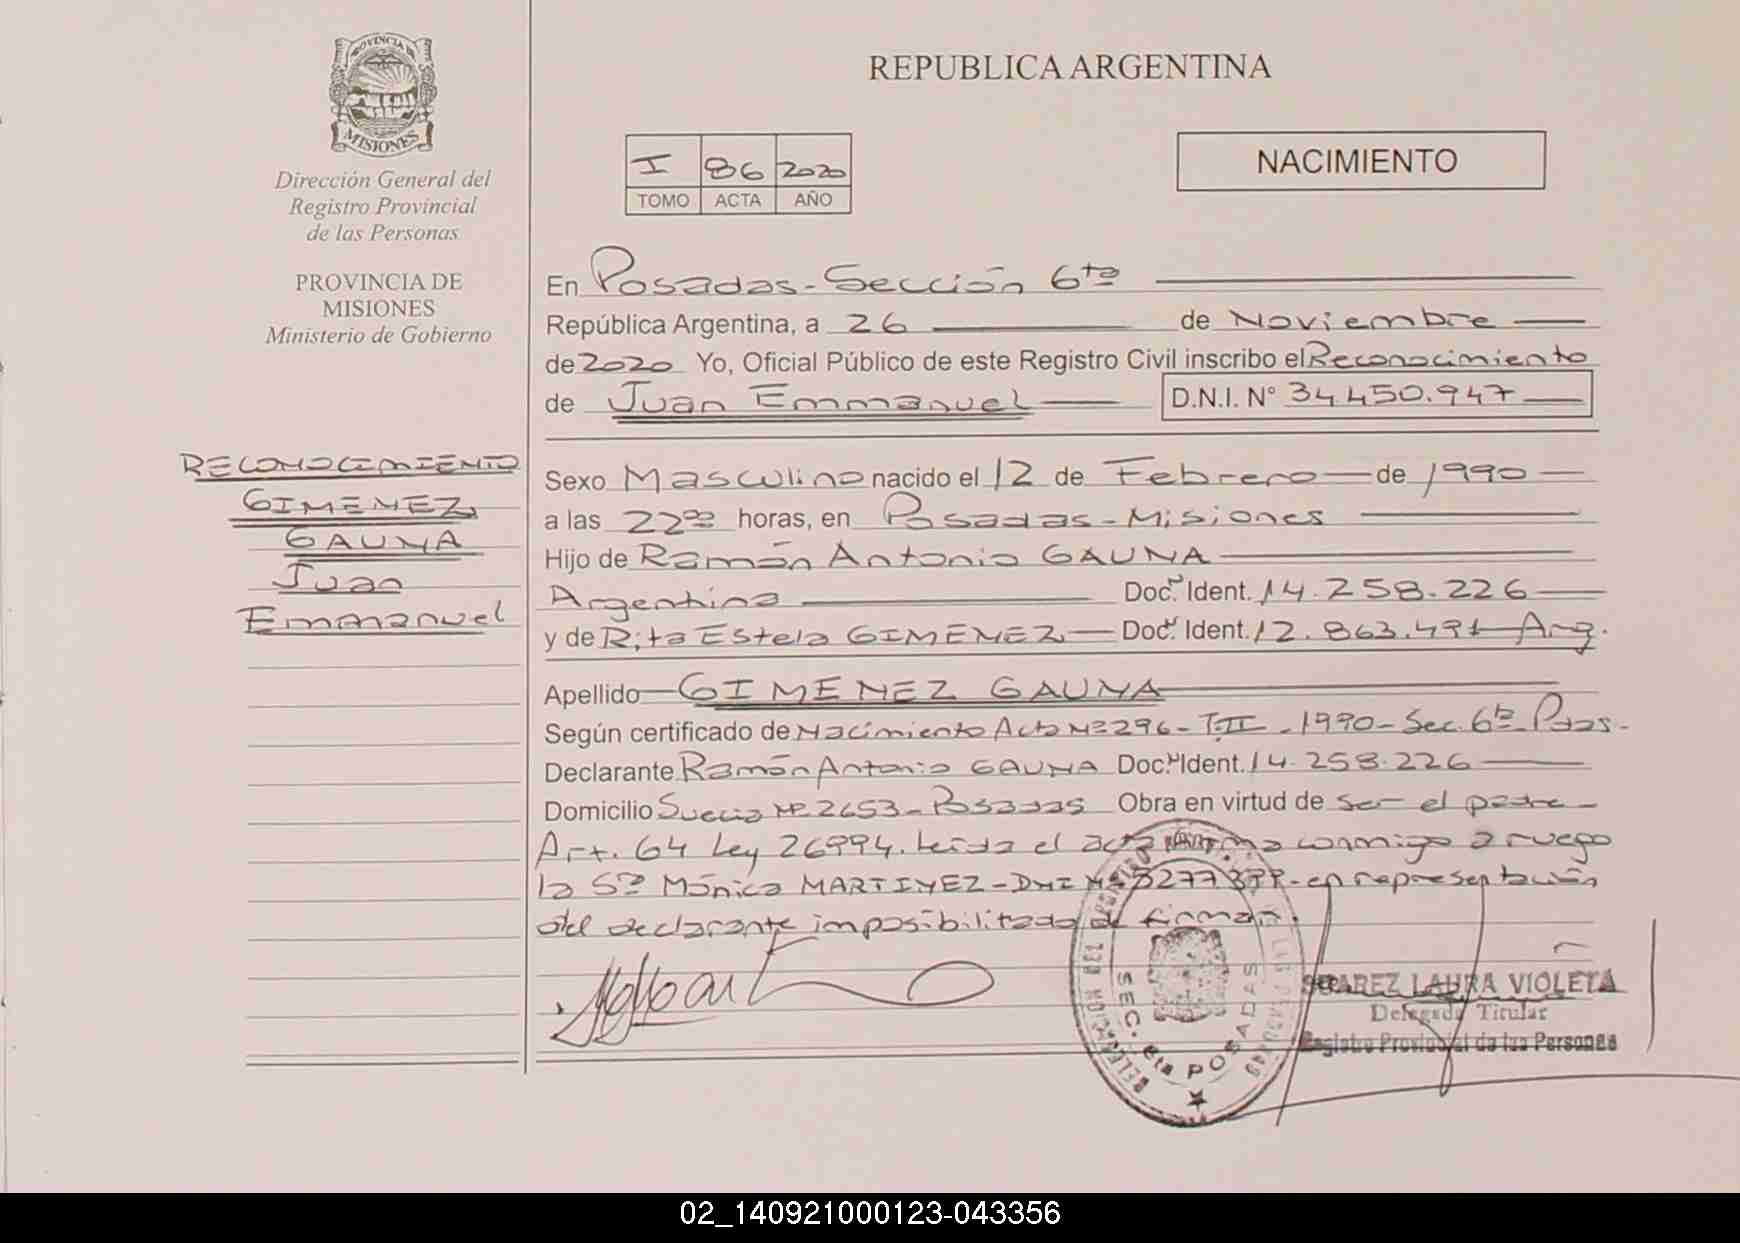 PROVINCIA DE
MISIONES
Dirección General del
Registro Provincial
de las Personas
PROVINCIA DE
MISIONES
Ministerio de Gobierno
RECONOCIMIENTO
GIMENEZ
GAUNA
Juan
Emmanuel
REPUBLICA ARGENTINA
I 86 2020
TOMO ACTA AÑO
NACIMIENTO
En Posadas - Sección 6ta
República Argentina, a 26 de Noviembre
de 2020 Yo, Oficial Público de este Registro Civil inscribo el Reconocimiento
de Juan Emmanuel D.N.I. N° 34.450.947
Sexo Masculino nacido el 12 de Febrero de 1990
a las 22 00 horas, en Posadas - Misiones
Hijo de Ramón Antonio GAUNA
Argentina Doc. Ident. 14.258.226
y de Rita Estela GIMENEZ Doc. Ident. 12.863.491 Arg.
Apellido GIMENEZ GAUNA
Según certificado de Nacimiento Acta Nº 296 - T.II - 1990 - Sec. 6ta Pdas.
Declarante Ramón Antonio GAUNA Doc. Ident. 14.258.226
Domicilio Suecia Nº 2653 - Posadas Obra en virtud de ser el padre -
Art. 64 Ley 26994. Leída el acta firma conmigo a ruego
la Sra Mónica MARTINEZ - DNI en representación
del declarante imposibilitado de firmar.
SEC. 6ta POSADAS
SUAREZ LAURA VIOLETA
Delegada Titular
Registro Provincial de las Personas
02_140921000123-043356